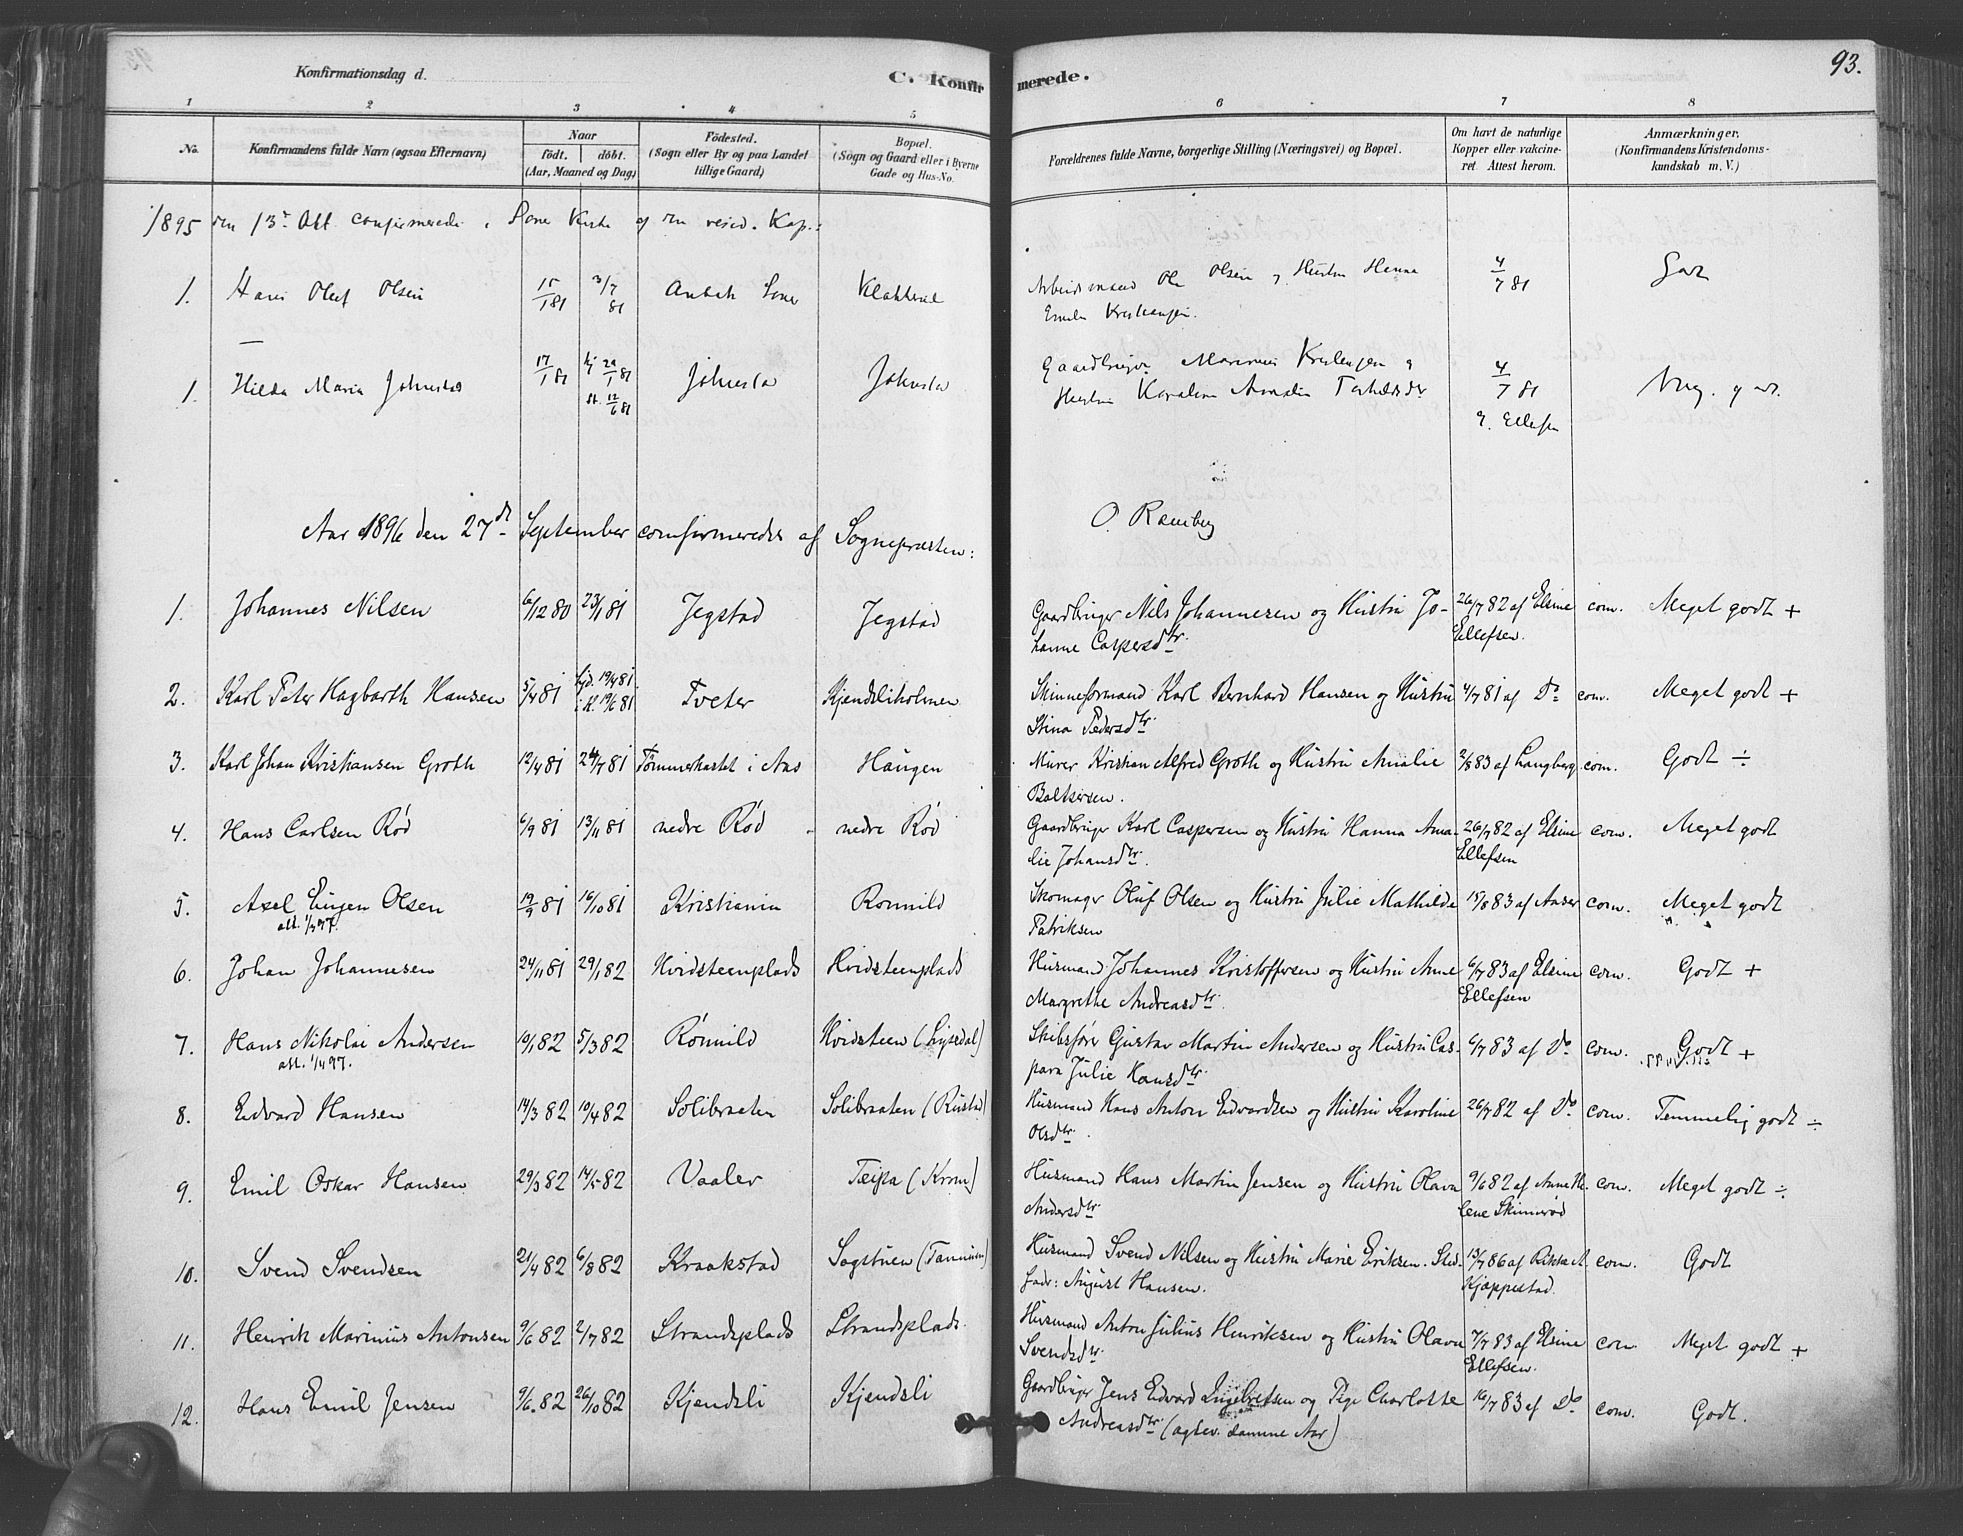 Konfirmationsdag d.
C. Konfirmerede.
93.
1 2 3 4 5 6 7 8
No.
Konfirmandens fulde Navn (ogsaa Efternavn)
Naar
födt. döbt.
(Aar, Maaned og Dag)
Födested.
(Sogn eller By og paa Landet
tillige Gaard)
Bopæl.
(Sogn og Gaard eller i Byerne
Gade og Hus-No.
Forældrenes fulde Navne, borgerlige Stilling (Næringsvei) og Bopæl.
Om havt de naturlige
Kopper eller vakcine-
ret. Attest herom.
Anmærkninger.
(Konfirmandens Kristendoms-
kundskab m. V.)
1895 den 13de Okt. confirmerede i Soner Kirke af den resid. Kap.:
1. Hans Oluf Olsen 15/1 81 3/7 81 Soner Arbeidsmand Ole Olsen og Hustru Hanna 4/7 81 Godt
Emilie Kristiansen.
1. Hilda Maria Johnstad 17/1 81 hj 29/1 81 Johnsta Johnsta Gaardbruger Marinius Kristensen og 4/7 81 Meg. godt.
st. 12/6 81 Hustru Karoline Amalia
E. Ellefsen
Aar 1896 den 27de September confirmeredes af Sognepræsten: O. Ramberg
1. Johannes Nilsen 6/12 80 23/1 81 Jegstad Jegstad Gaardbruger Nils Johannesen og Hustru Jo- 26/7 82 af Elsine com. Meget godt +
hanne Caspersdtr. Ellefsen.
2. Karl Peter Hagbarth Hansen 5/4 81 hjd. 19/4 81 Tveter Kjendsliholmen Skinneformand Karl Bernhard Hansen og Hustru 4/7 81 af Do com. Meget godt +
i K. 19/6 81 Stina Pedersdtr.
3. Karl Johan Kristiansen Groth 12/4 81 24/7 81 Tømmerkastet i Aas Haugen Murer Kristian Alfred Groth og Hustru Amalie 2/8 83 af Langberg com. Godt ÷
Baltsersen.
4. Hans Carlsen Rød 6/9 81 13/11 81 nedre Rød nedre Rød Gaardbruger Karl Caspersen og Hustru Hanna Ama- 26/7 82 af Elsine com. Meget godt
lie Johansdtr. Ellefsen
5. Axel Eugen Olsen 19/9 81 16/10 81 Kristiania Romuld Skomager Oluf Olsen og Hustru Julie Mathilde 15/8 83 af com. Meget godt
Patriksen
6. Johan Johannesen 24/11 81 29/1 82 Hvidsteenplads Hvidsteenplads Husmand Johannes Kristoffersen og Hustru Anne 6/7 83 af Elsine com. Godt +
Margrethe Andreasdtr. Ellefsen
7. Hans Nikolai Andersen 10/1 82 5/3 82 Rømuld Hvidsteen Skibsfører Gustav Martin Andersen og Hustru Cas- 6/7 83 af Do com. Godt +
att. 1/4 97. para Julie Hansdtr.
8. Edvard Hansen 14/3 82 10/4 82 Solibraaten Solibraaten (Rustad) Husmand Hans Anton Edvardsen og Hustru Karoline 26/7 82 af Do com. Temmelig godt ÷
Olsdtr.
9. Emil Oskar Hansen 29/3 82 14/5 82 Vaaler Husmand Hans Martin Jensen og Hustru Olava 9/6 82 af Anne He- com. Meget godt ÷
Andersdtr. lene Skinnerød
10. Svend Svendsen 21/4 82 6/8 82 Kraakstad Sagstuen Husmand Svend Nilsen og Hustru Marie Eriksen. Sted- 13/7 86 af Rikka A. com. Godt
fadr: August Hansen. Kjoppestad.
11. Henrik Marinius Antonsen 9/6 82 2/7 82 Strandsplads Strandsplads. Husmand Anton Julius Henriksen og Hustru Olava 7/7 83 af Elsine com. Meget godt +
Svendsdtr. Ellefsen.
12. Hans Emil Jensen 9/6 82 26/10 82 Kjendsli Kjendsli Gaardbruger Jens Edvard Ingebretsen og Pige Charlotte 16/7 83 af Do com. Godt.
Andreasdtr. (ægtev. samme Aar)